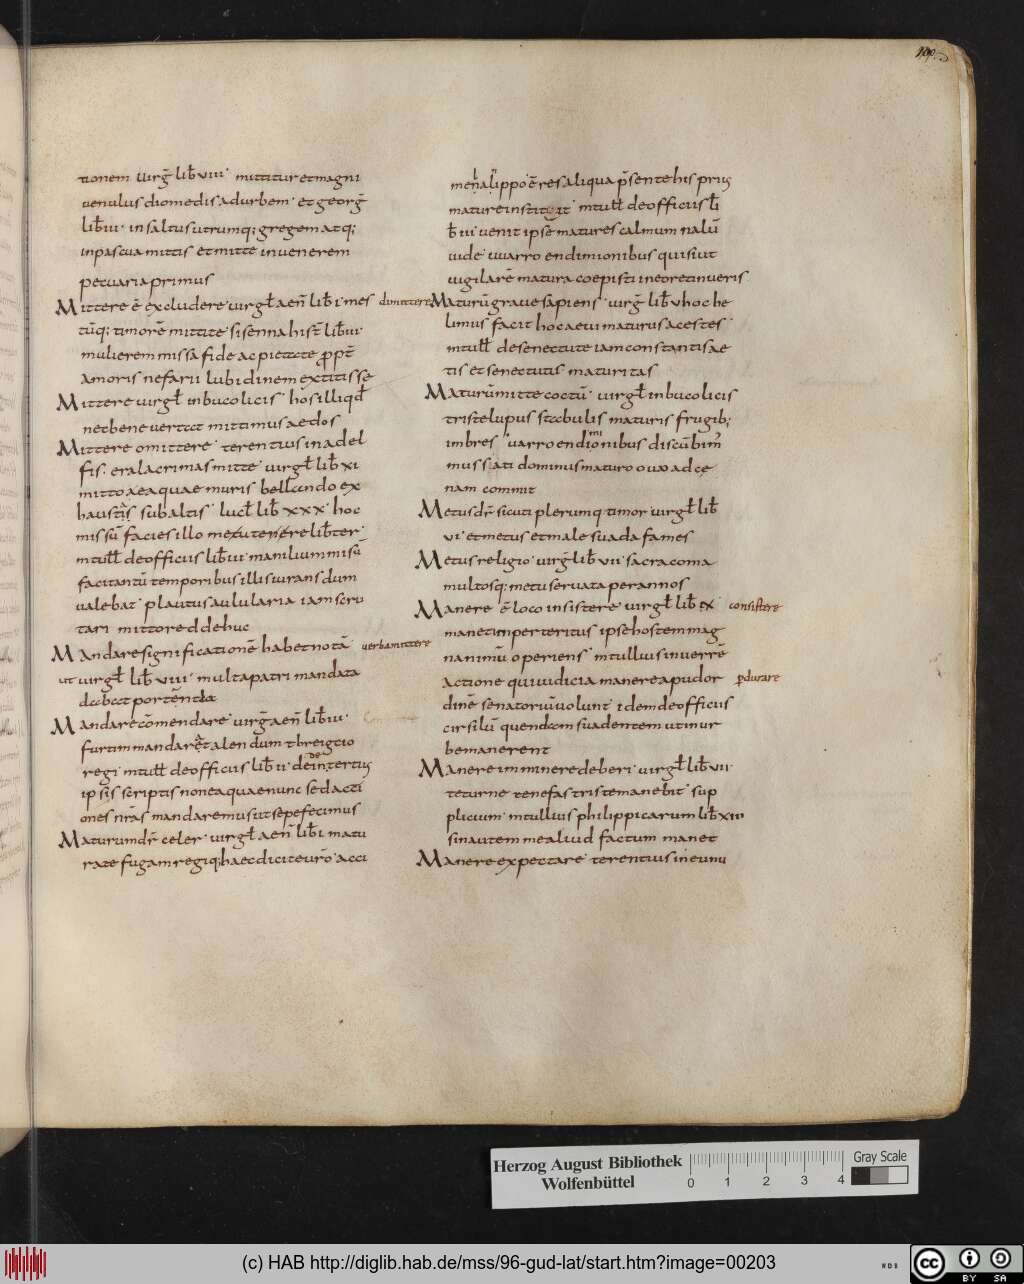 100
tionem uirḡ lib̄ viii · mittitur et magni
uenulus diomedis ad urbem · et georḡ
lib̄ iii · in saltus utrumq; gregem atq;
in pascua mittis et mitte in uenerem
pecuaria primus
Mittere ē excludere uirgł aen̄ lib̄ i · mes
tūq; timorē mittite sisenna hist̄ lib̄ iii ·
mulierem missā fide ac pietate ꝓpt̄
amoris nefarii lubidinem extitisse
Mittere uirgł in bucolicis · hos illi qđ
nec bene uertat mittimus aedos
Mittere omittere · terentius in adel
fis · era lacrimas mitte · uirgł lib̄ xi
mitto aea quae muris bellando ex
haustis sub altis · lucł lib̄ xxx · hoc
missū facies illo me
mtułł de officiis lib̄ iii · manilium misū
faci tantū temporibus illis iurans dum
ualebat · plautus aulularia iam scru
tari mitto redde huc
Mandare significationē habet notā
ut uirgł lib̄ viii · multa patri mandata
dabat portanda
Mandare cōmendare · uirḡ aen̄ lib̄ iii ·
furtim mandarat alendum threigcio
regi · mtułł de officiis lib̄ ii · de in tertus
ipsis scriptis non ea quae nunc sed acti
ones nr̄as mandaremus ut sepe fecimus
Maturum dr̄ celer · uirgł aen̄ lib̄ i matu
rate fugam regiq; haec dicite uro · acci
dimittere
uerba mittere
menalippo ē res aliqua p̄sente his prius
mature instituit · mtułł de officiis li
b̄ iii · uenit ipse matures calmum nalū
uide · uuarro endimionibus quis iut
uigilarē matura coepisti
Maturū graue sapiens · uirḡ lib̄ v hoc he
limus facit hoc aeui maturus acestes ·
mtułł de senectute iam constantis ae
tis et senectutis maturitas
Maturū mitte coctū · uirgł in bucolicis
triste lupus stabulis maturis frugib;
imbres · uarro endimionibus discubim̄
mussati dominus maturo ouo ad cę
nam commit
Metus dr̄ sicuti plerumq timor uirgł lib̄
vi · et metus et male suada fames
Metus religio · uirḡ lib̄ vii · sacra coma
multosq; metu seruata per annos
Manere ē loco insistere uirgł lib̄ ex
manet inperteritus ipse hostem mag
nanimū operiens · mtullius in uerrē
actione qui iudicia manere apud or
dinē senatoriū uolunt · idem de officiis
cirsilū quendam suadentem ut in ur
be manerent
Manere imminere deberi · uirgł lib̄ vii ·
te turne te nefas triste manebit sup
plicium · mtullius philippicarum lib̄ xiii
sin autem me aliud fatum manet
Manere expectare · terentius in eunu
consistere
ꝑdurare
Herzog August Bibliothek
Wolfenbüttel
0 1 2 3 4
Gray Scale
(c) HAB http://diglib.hab.de/mss/96-gud-lat/start.htm?image=00203
WDB
cc BY SA